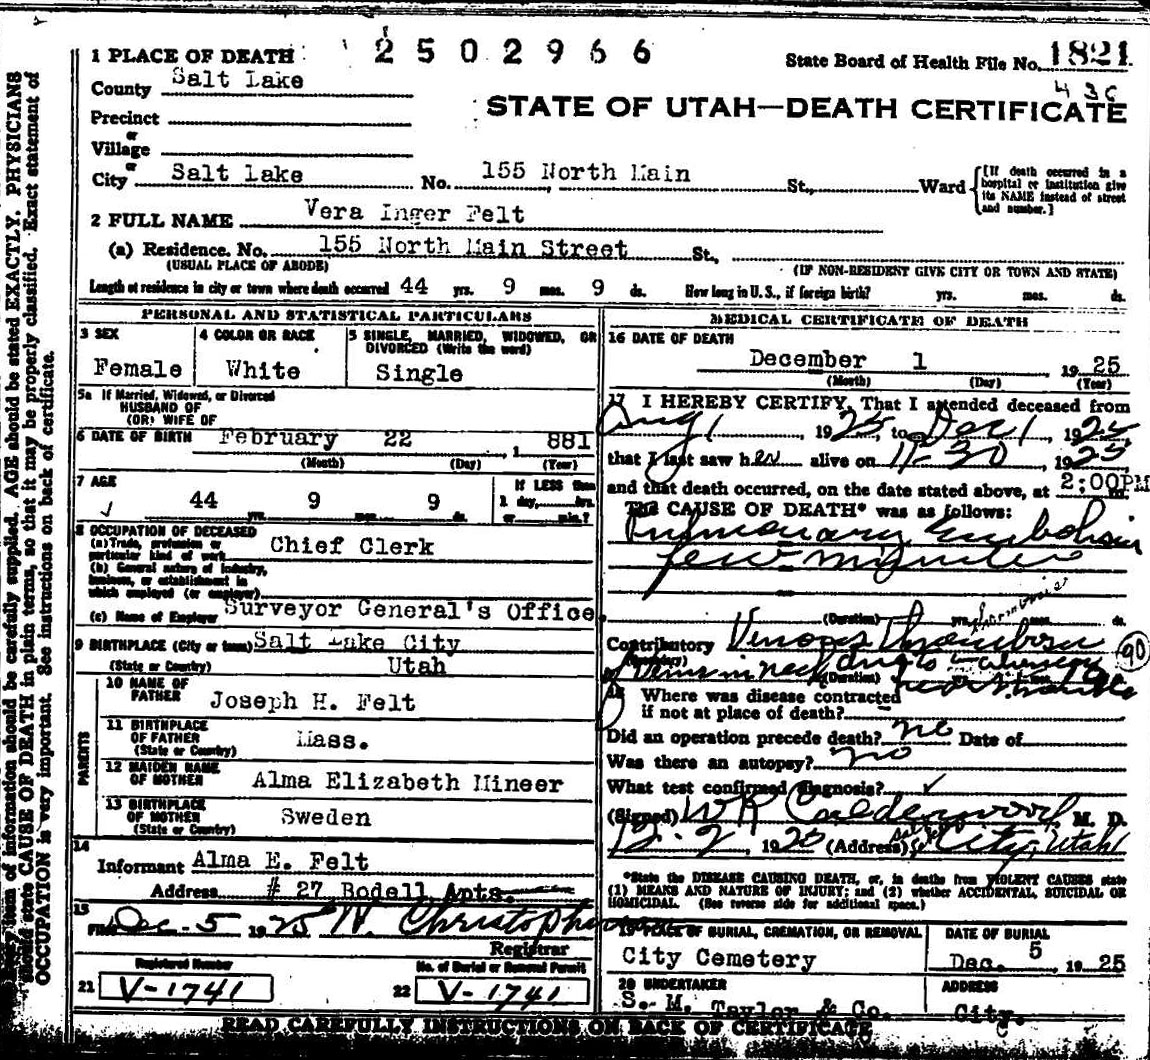 2502966
1 PLACE OF DEATH
State Board of Health File No. 1821
43C
County Salt Lake
STATE OF UTAH—DEATH CERTIFICATE
Precinct
or
Village
or
City Salt Lake No. 155 North Main St., Ward
[If death occurred in a hospital or institution give its NAME instead of street and number.]
2 FULL NAME Vera Inger Felt
(a) Residence. No. 155 North Main Street St.,
(USUAL PLACE OF ABODE) (IF NON-RESIDENT GIVE CITY OR TOWN AND STATE)
Length of residence in city or town where death occurred 44 yrs. 9 mos. 9 ds. How long in U.S., if foreign birth? yrs. mos. ds.
PERSONAL AND STATISTICAL PARTICULARS
3 SEX
Female
4 COLOR OR RACE
White
5 SINGLE, MARRIED, WIDOWED, OR
DIVORCED (Write the word)
Single
5a If Married, Widowed, or Divorced
HUSBAND OF
(OR) WIFE OF
6 DATE OF BIRTH February 22, 1881
(Month) (Day) (Year)
7 AGE
44 yrs. 9 mos. 9 ds.
If LESS than
1 day, hrs.
or min.?
8 OCCUPATION OF DECEASED
(a) Trade, profession or
particular kind of work Chief Clerk
(b) General nature of industry,
business, or establishment in
which employed (or employer)
(c) Name of Employer Surveyor General's Office
9 BIRTHPLACE (City or town) Salt Lake City
(State or Country) Utah
PARENTS
10 NAME OF
FATHER Joseph H. Felt
11 BIRTHPLACE
OF FATHER
(State or Country) Mass.
12 MAIDEN NAME
OF MOTHER Alma Elizabeth Mineer
13 BIRTHPLACE
OF MOTHER
(State or Country) Sweden
14
Informant Alma E. Felt
Address # 27 Bodell Apts.
15
Filed Dec. 5 1925
Registrar
Registered Number
21 V-1741
No. of Burial or Removal Permit
22 V-1741
MEDICAL CERTIFICATE OF DEATH
16 DATE OF DEATH
December 1 1925
(Month) (Day) (Year)
17 I HEREBY CERTIFY, That I attended deceased from
Aug 1, 1925, to Dec 1, 1925,
that I last saw her alive on 11-30, 1925
and that death occurred, on the date stated above, at 2:00PM
THE CAUSE OF DEATH* was as follows:
Pulmonary Embolism
few minutes
(Duration) yrs. mos. ds.
Contributory Venous Thrombosis
(Secondary) of veins in neck due to
(Duration) yrs. mos.
18 Where was disease contracted
if not at place of death?
Did an operation precede death? no Date of
Was there an autopsy? no
What test confirmed diagnosis?
(Signed) WR Calderwood M. D.
12-2, 1925 (Address) City, Utah
*State the DISEASE CAUSING DEATH, or, in deaths from VIOLENT CAUSES state
(1) MEANS AND NATURE OF INJURY; and (2) whether ACCIDENTAL, SUICIDAL OR
HOMICIDAL. (See reverse side for additional space.)
90
19 PLACE OF BURIAL, CREMATION, OR REMOVAL
City Cemetery
DATE OF BURIAL
Dec. 5 1925
20 UNDERTAKER
S. M. Taylor & Co.
ADDRESS
City.
READ CAREFULLY INSTRUCTIONS ON BACK OF CERTIFICATE
item of information should be carefully supplied. AGE should be stated EXACTLY. PHYSICIANS
should state CAUSE OF DEATH in plain terms, so that it may be properly classified. Exact statement of
OCCUPATION is very important. See instructions on back of certificate.